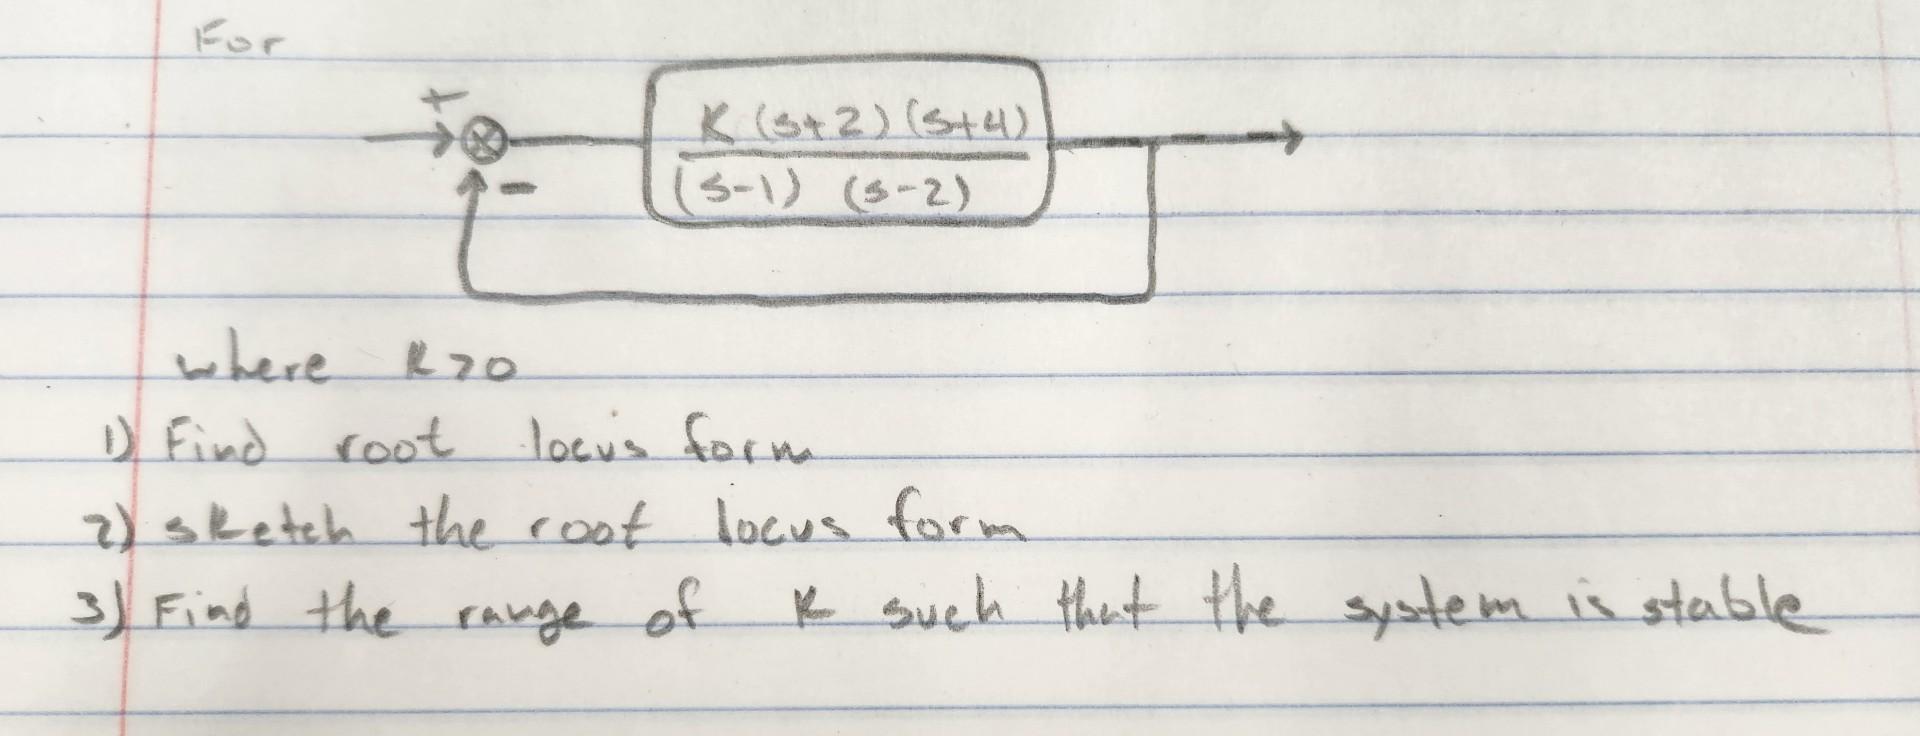 For
+
K (s+2) (s+4)
(s-1) (s-2)
-
where K>0
1) Find root locus form
2) sketch the root locus form
3) Find the range of K such that the system is stable